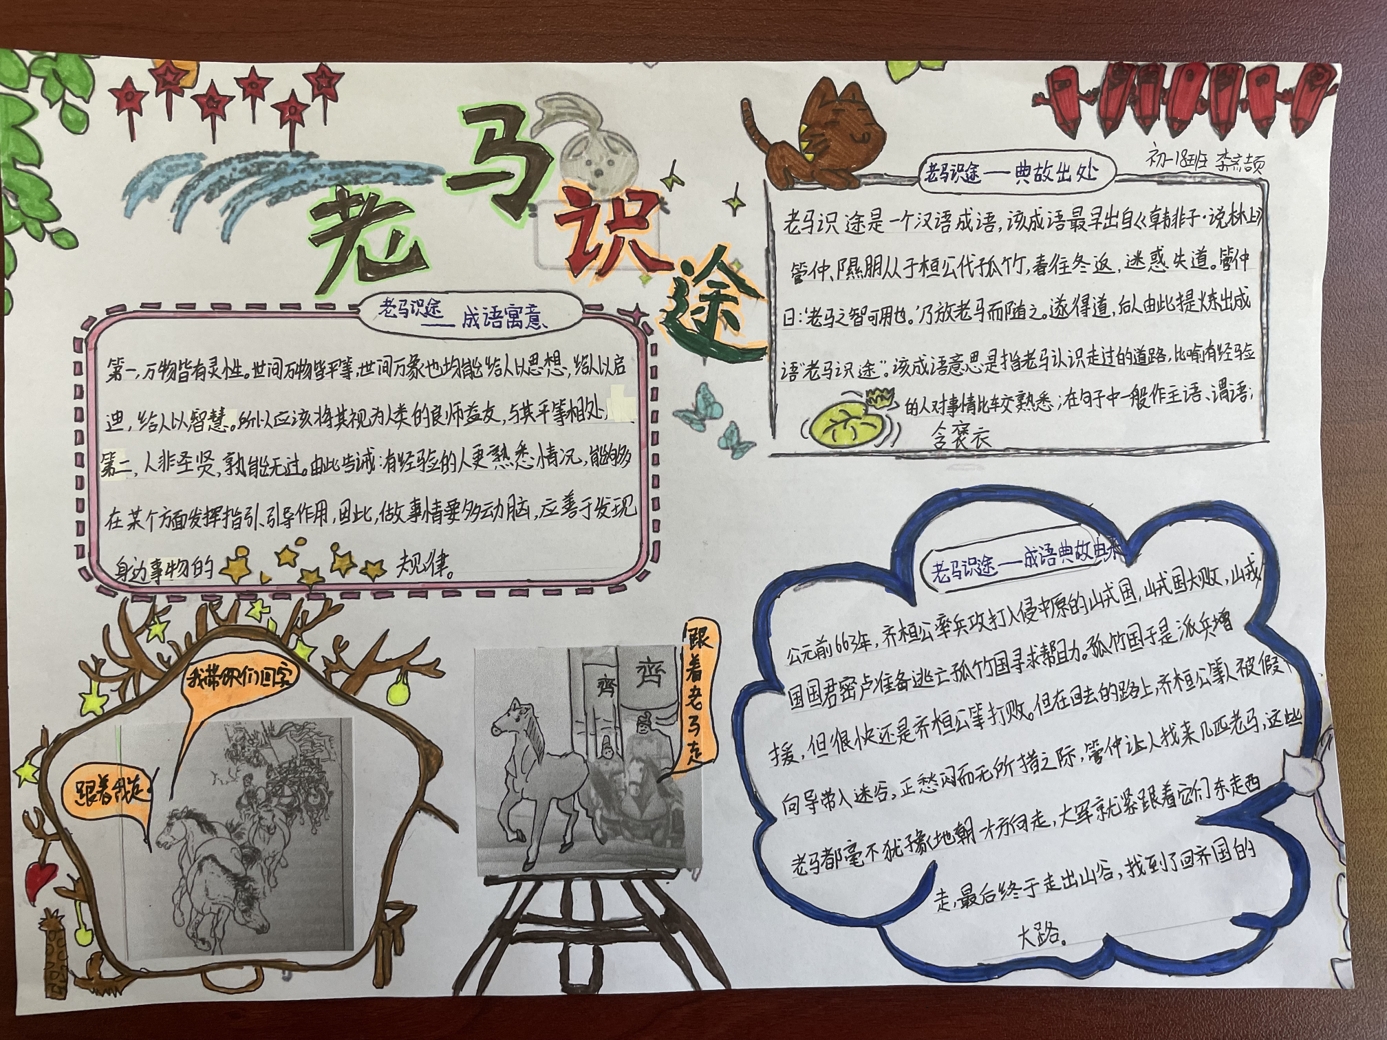 老马识途
初一18班
老马识途——成语寓意
第一,万物皆有灵性。世间万物皆平等,世间万象也均能给人以思想,给人以启
迪,给人以智慧。所以应该将其视为人类的良师益友,与其平等相处,
第二,人非圣贤,孰能无过。由此告诫:有经验的人更熟悉情况,能够多
在某个方面发挥指引、引导作用,因此,做事情要多动脑,应善于发现
身边事物的规律。
老马识途——典故出处
老马识途是一个汉语成语,该成语最早出自《韩非子·说林上》
管仲、隰朋从于桓公伐孤竹,春往冬返,迷惑失道。管仲
曰:“老马之智可用也。”乃放老马而随之。遂得道,后人由此提炼出成
语“老马识途”。该成语意思是指老马认识走过的道路,比喻有经验
的人对事情比较熟悉;在句子中一般作主语、谓语;
含褒衣
我带你们回家
跟着我走
齊
齊
跟着老马走
老马识途——成语典故由来
公元前663年,齐桓公率兵攻打入侵中原的山戎国,山戎国大败,山戎
国国君密卢准备逃亡孤竹国寻求帮助。孤竹国于是派兵增
援,但很快还是齐桓公等打败。但在回去的路上,齐桓公等人被假
向导带入迷谷,正愁闷而无所措之际,管仲让人找来几匹老马,这些
老马都毫不犹豫地朝一方向走,大军就紧跟着它们东走西
走,最后终于走出山谷,找到了回齐国的
大路。